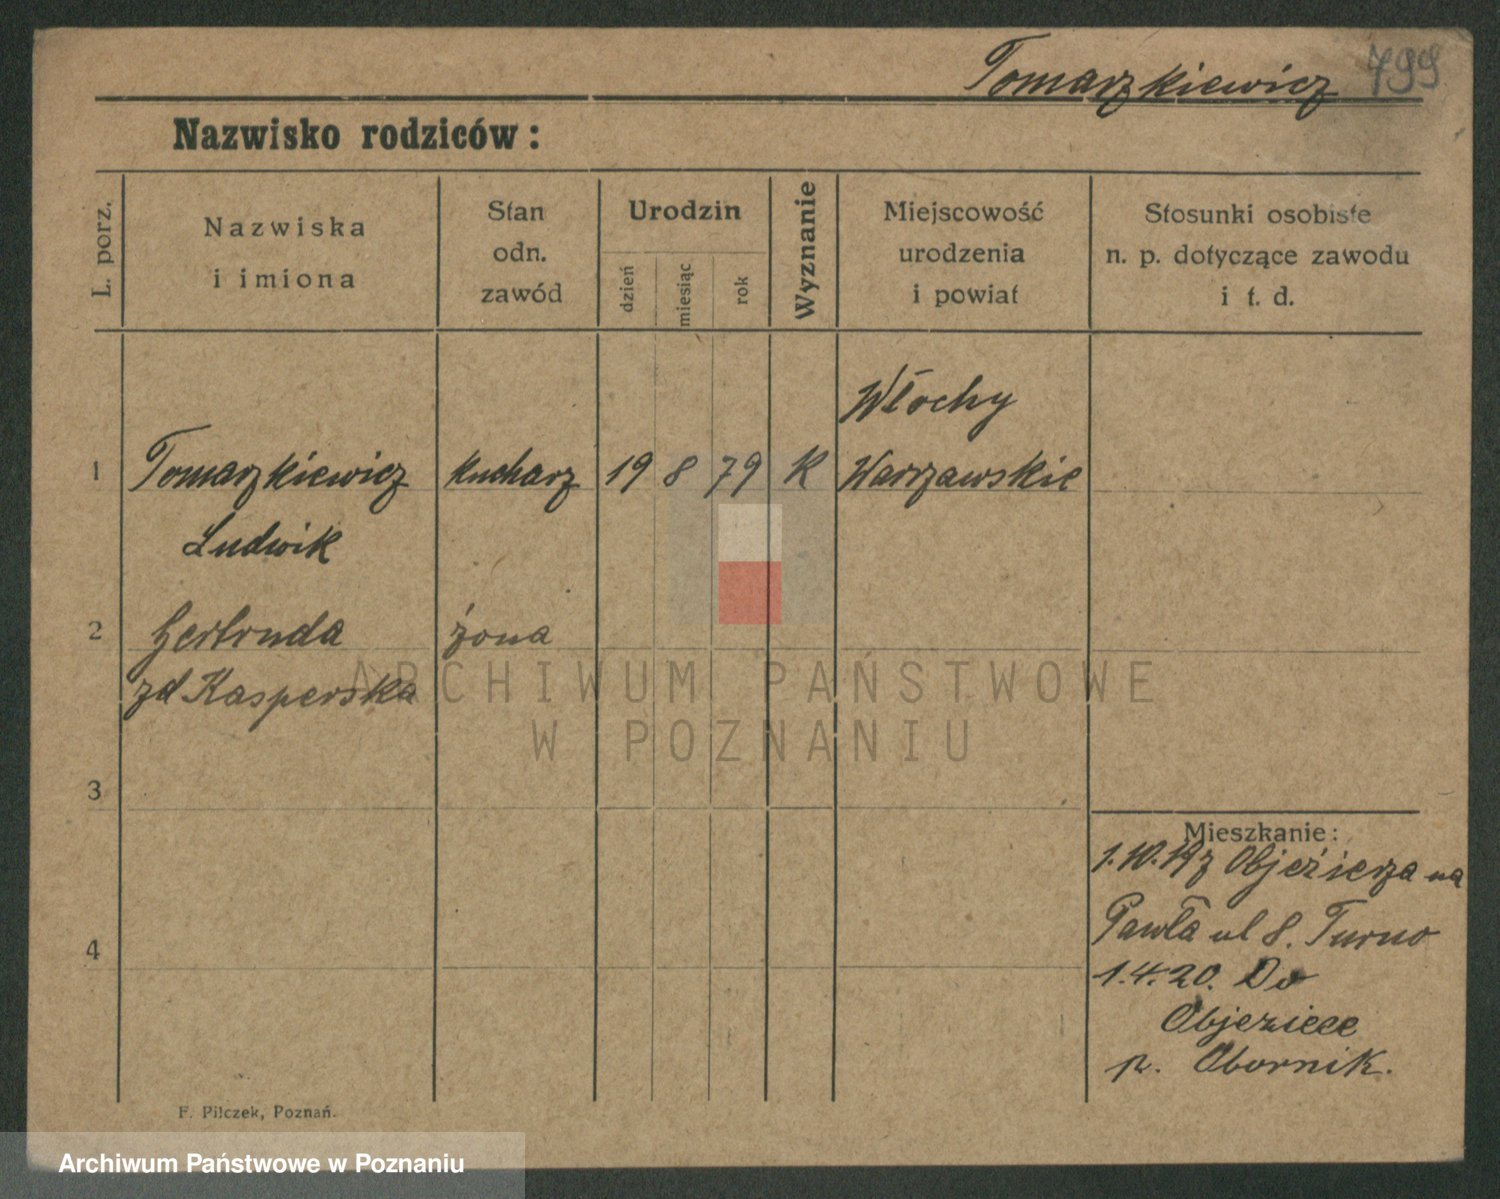 Tomarzkiewicz 799
Nazwisko rodziców:
L. porz.
Nazwiska
i imiona
Stan
odn.
zawód
Urodzin
dzień
miesiąc
rok
Wyznanie
Miejscowość
urodzenia
i powiat
Stosunki osobiste
n. p. dotyczące zawodu
i t. d.
Włochy
1 Tomarzkiewicz kucharz 19 8 79 K Warszawskie
Ludwik
2 Gertruda żona
zd Kasperska
ARCHIWUM PAŃSTWOWE
W POZNANIU
3
4
Mieszkanie:
1.10.19 z Objezierza na
Pawła ul 8. Turno
1.4.20. Do
Objeziece
p. Obornik.
F. Pilczek, Poznań.
Archiwum Państwowe w Poznaniu